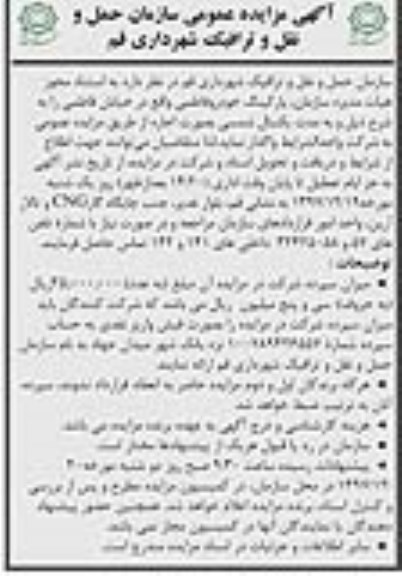 آگهی مزایده عمومی سازمان حمل و
نقل و ترافیک شهرداری قم
سازمان حمل و نقل و ترافیک شهرداری قم در نظر دارد به استناد مجوز
هیات مدیره سازمان، پارکینگ واقع در خیابان فاطمی را به
شرح ذیل و به مدت یکسال شمسی بصورت اجاره از طریق مزایده عمومی
به شرکت واجدالشرایط واگذار نماید لذا متقاضیان می توانند جهت اطلاع
از شرایط و دریافت و تحویل اسناد و شرکت در مزایده از تاریخ نشر آگهی
به جز ایام تعطیل تا پایان وقت اداری روز یک شنبه
به نشانی قم، بلوار غدیر، جنب جایگاه گاز CNG و تالار
واحد امور قراردادهای سازمان مراجعه و در صورت نیاز با شماره تلفن
داخلی های ۱۴۱ و ۱۴۲ تماس حاصل فرمایند.
توضیحات:
میزان سپرده شرکت در مزایده آن مبلغ (به عدد) ریال
(به حروف) سی و پنج میلیون ریال می باشد که شرکت کنندگان باید
میزان سپرده شرکت در مزایده را بصورت فیش واریز نقدی به حساب
سپرده شماره نزد بانک شهر میدان جهاد به نام سازمان
حمل و نقل و ترافیک شهرداری قم ارائه نمایند.
هرگاه برندگان اول و دوم مزایده حاضر به انعقاد قرارداد نشوند، سپرده
آنان به ترتیب ضبط خواهد شد.
هزینه کارشناسی و درج آگهی به عهده برنده مزایده می باشد.
سازمان در رد یا قبول هریک از پیشنهادها مختار است.
پیشنهادات رسیده ساعت ۹:۳۰ صبح روز دو شنبه مورخه
در محل سازمان، در کمیسیون مزایده مطرح و پس از بررسی
و کنترل اسناد، برنده مزایده اعلام خواهد شد. همچنین حضور پیشنهاد
دهندگان یا نمایندگان آنها در کمیسیون مجاز می باشد.
سایر اطلاعات و جزئیات در اسناد مزایده مندرج است.